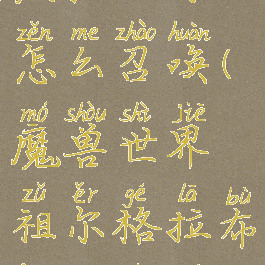 zěn me zhào huàn
怎么召唤(
mó shòu shì jiè
魔兽世界
zǔ ěr gé lā bù
祖尔格拉布